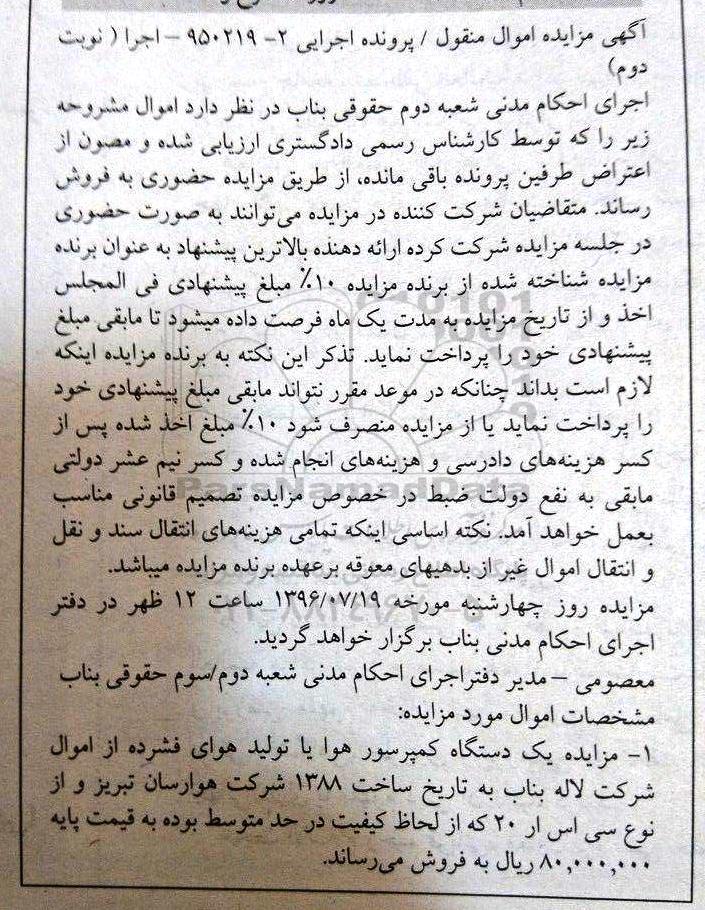 آگهی مزایده اموال منقول / پرونده اجرایی ۲- ۹۵۰۲۱۹ – اجرا ( نوبت
دوم)
اجرای احکام مدنی شعبه دوم حقوقی بناب در نظر دارد اموال مشروحه
زیر را که توسط کارشناس رسمی دادگستری ارزیابی شده و مصون از
اعتراض طرفین پرونده باقی مانده، از طریق مزایده حضوری به فروش
رساند. متقاضیان شرکت کننده در مزایده می‌توانند به صورت حضوری
در جلسه مزایده شرکت کرده ارائه دهنده بالاترین پیشنهاد به عنوان برنده
مزایده شناخته شده از برنده مزایده ۱۰٪ مبلغ پیشنهادی فی المجلس
اخذ و از تاریخ مزایده به مدت یک ماه فرصت داده میشود تا مابقی مبلغ
پیشنهادی خود را پرداخت نماید. تذکر این نکته به برنده مزایده اینکه
لازم است بداند چنانکه در موعد مقرر نتواند مابقی مبلغ پیشنهادی خود
را پرداخت نماید یا از مزایده منصرف شود ۱۰٪ مبلغ اخذ شده پس از
کسر هزینه‌های دادرسی و هزینه‌های انجام شده و کسر نیم عشر دولتی
مابقی به نفع دولت ضبط در خصوص مزایده تصمیم قانونی مناسب
بعمل خواهد آمد. نکته اساسی اینکه تمامی هزینه‌های انتقال سند و نقل
و انتقال اموال غیر از بدهیهای معوقه برعهده برنده مزایده میباشد.
مزایده روز چهارشنبه مورخه ۱۳۹۶/۰۷/۱۹ ساعت ۱۲ ظهر در دفتر
اجرای احکام مدنی بناب برگزار خواهد گردید.
معصومی – مدیر دفتراجرای احکام مدنی شعبه دوم/سوم حقوقی بناب
مشخصات اموال مورد مزایده:
۱- مزایده یک دستگاه کمپرسور هوا یا تولید هوای فشرده از اموال
شرکت لاله بناب به تاریخ ساخت ۱۳۸۸ شرکت هوارسان تبریز و از
نوع سی اس ار ۲۰ که از لحاظ کیفیت در حد متوسط بوده به قیمت پایه
۸۰,۰۰۰,۰۰۰ ریال به فروش می‌رساند.
ParsNamadData